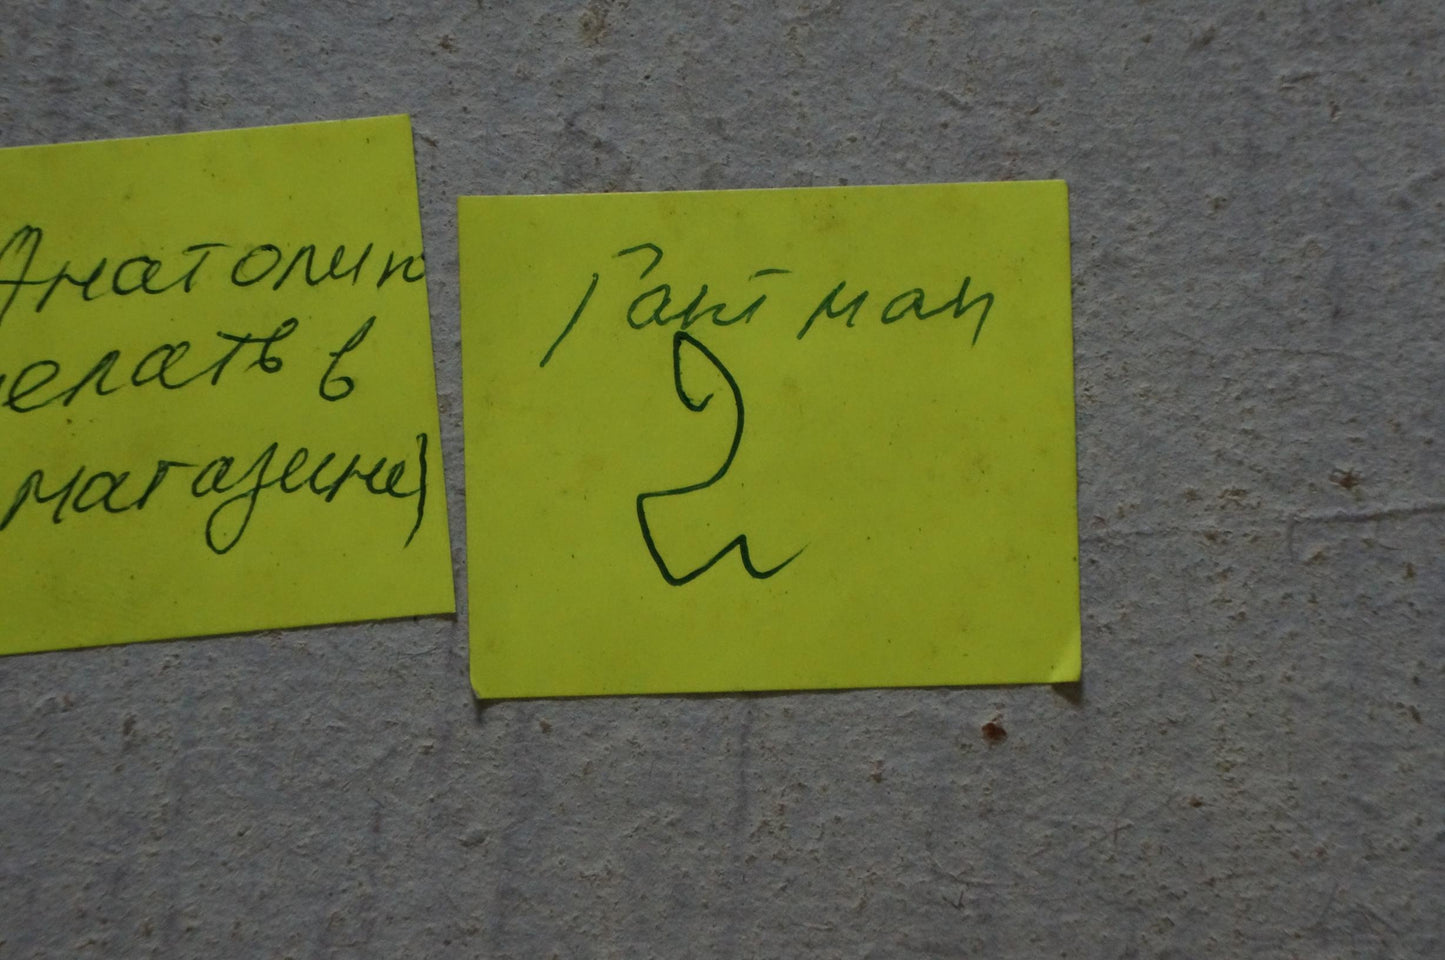 Анатолию
елать в
магазине)
Гантман